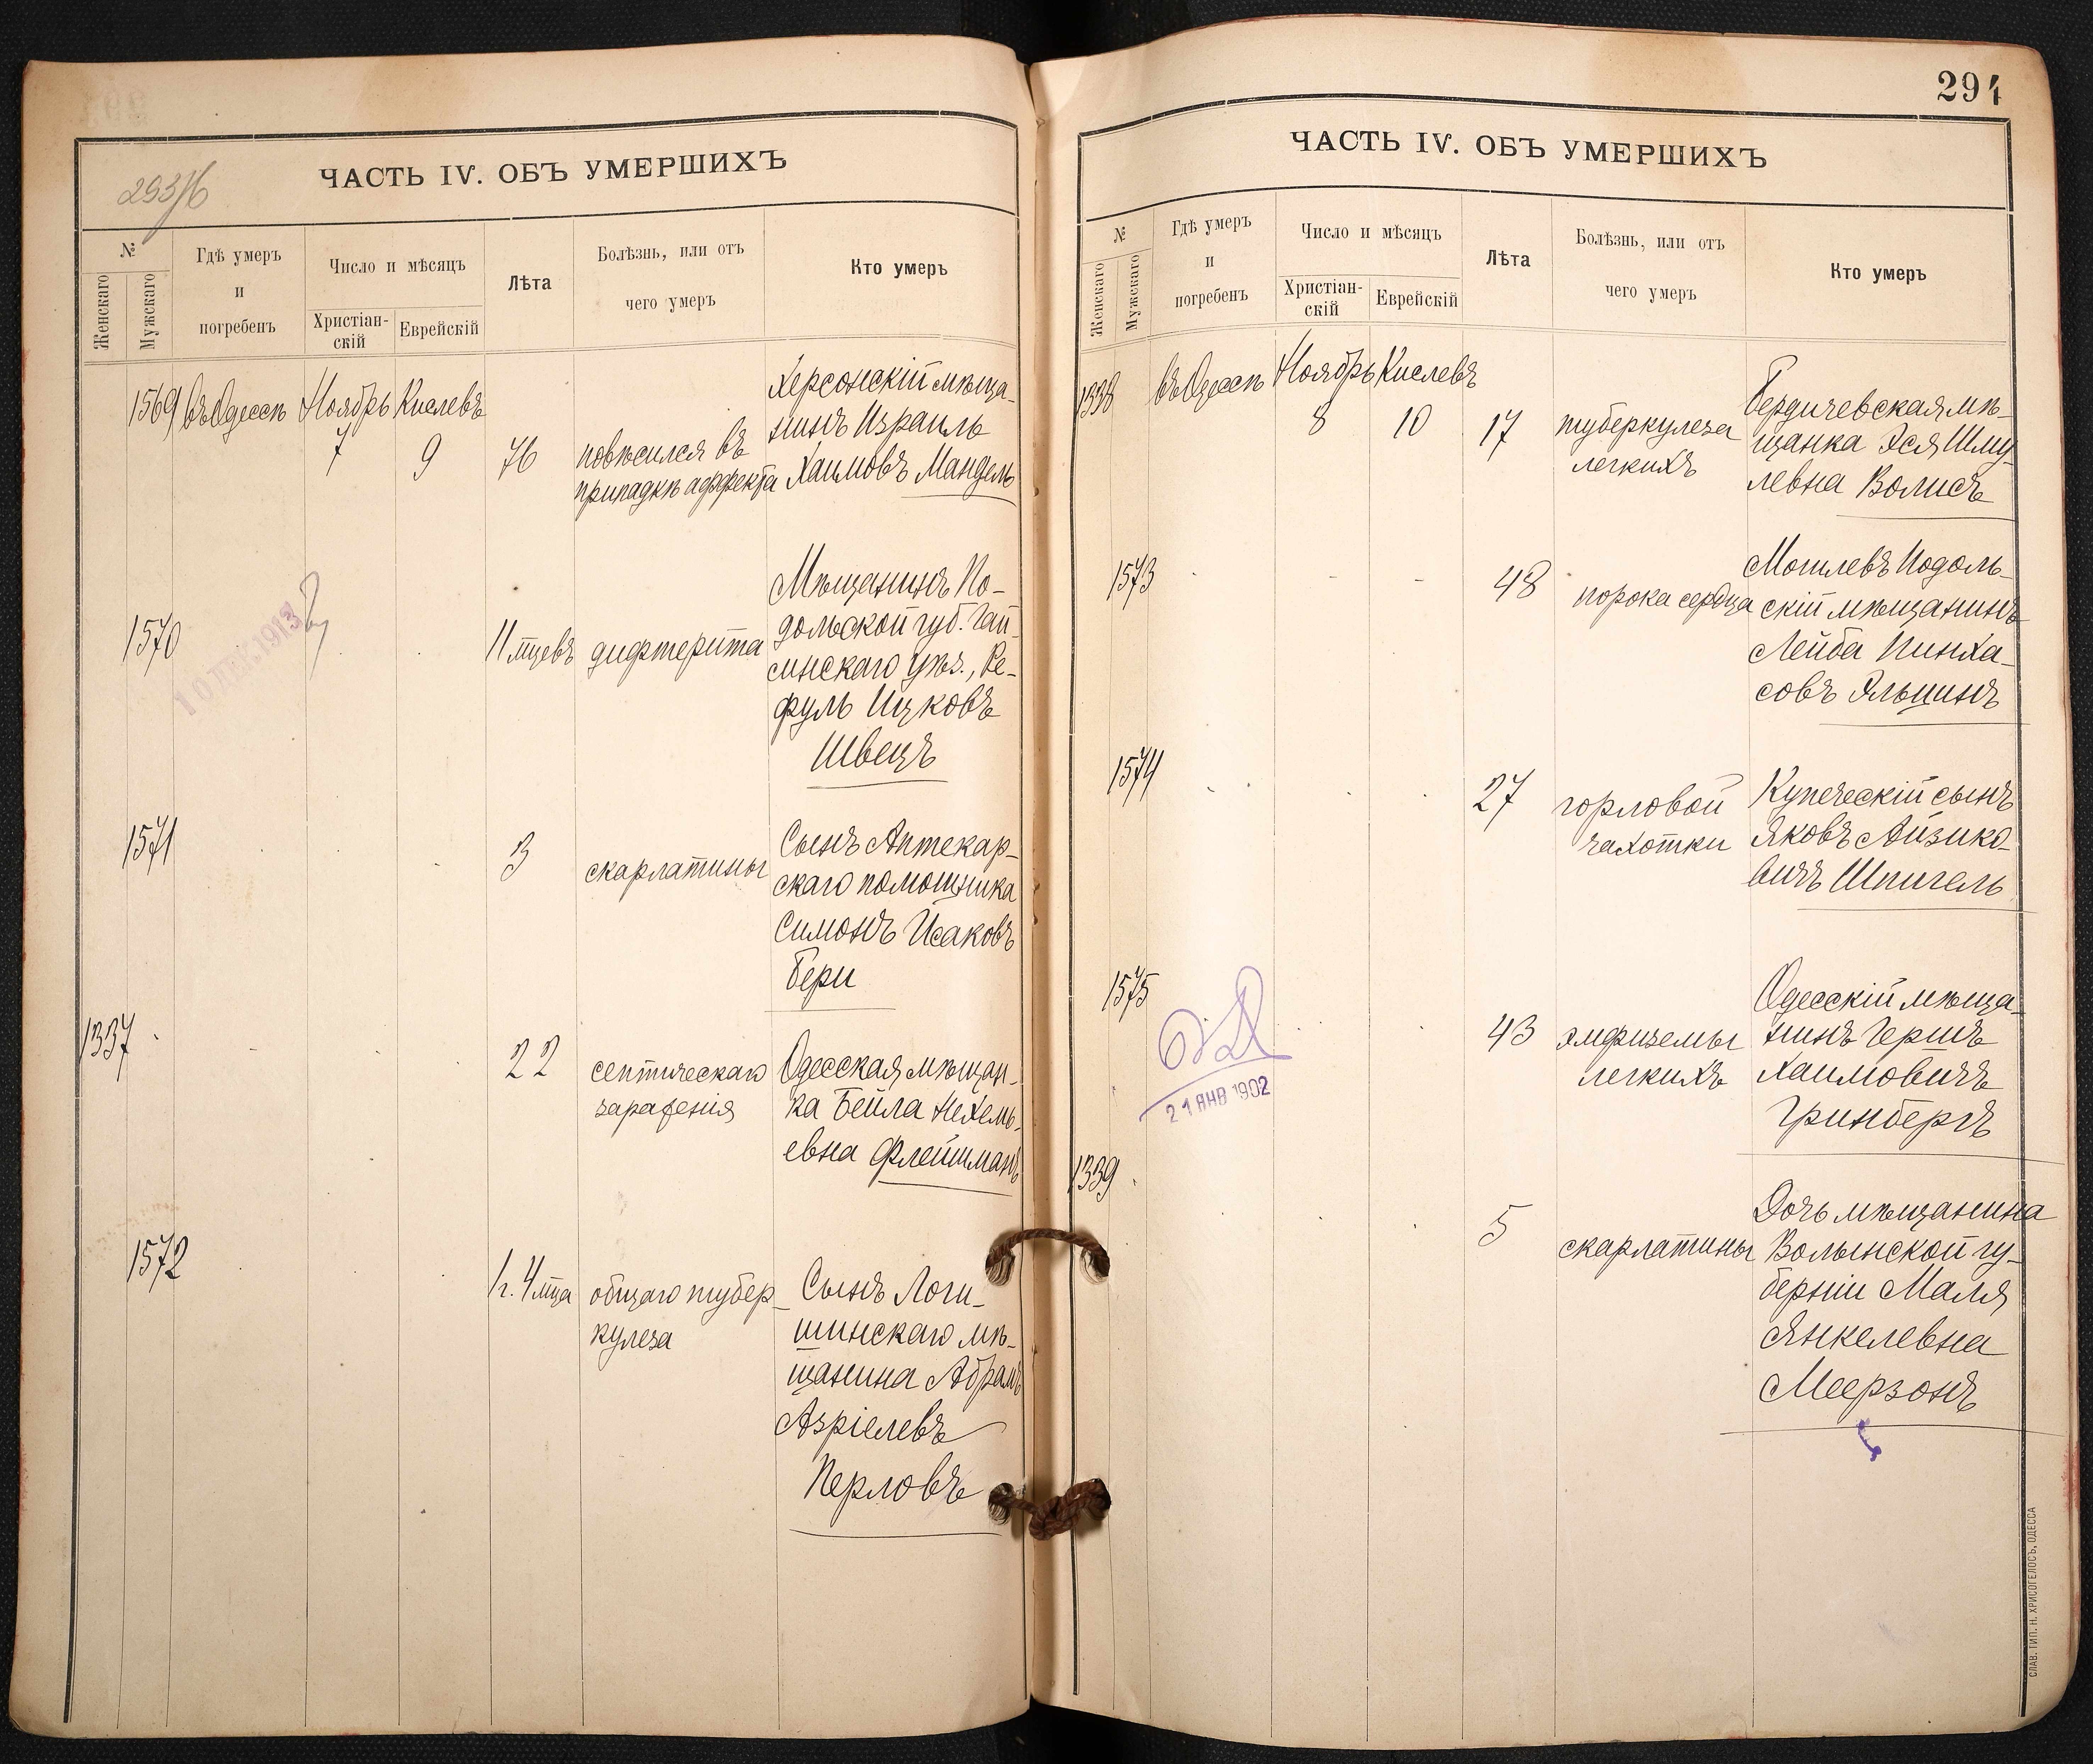 293/б
ЧАСТЬ IV. ОБЪ УМЕРШИХЪ
№
Женскаго
Мужскаго
Гдѣ умеръ
и
погребенъ
Число и мѣсяцъ
Христіан-
скій
Еврейскій
Лѣта
Болѣзнь, или отъ
чего умеръ
Кто умеръ
1569 въ Одессѣ Ноябрь Кислевъ
7 9 76
повѣсился въ
припадкѣ аффекта
Херсонскій мѣща-
нинъ Израиль
Хаимовъ Мандель
1570
10 ДЕК 1913
11 мцевъ дифтерита
Мѣщанинъ По-
дольской губ. Гай-
синскаго уѣз., Ре-
фуль Ицковъ
Швецъ
1571
3 скарлатины
Сынъ Аптекар-
скаго помощника
Симонъ Исаковъ
Бери
1337
22 септическаго
зараженія
Одесская мѣщан-
ка Бейла Нехемь-
евна Флейшманъ
1572
1 г. 4 мца общаго тубер-
кулеза
Сынъ Логи-
шинскаго мѣ-
щанина Абрамъ
Азріелевъ
Перловъ
294
ЧАСТЬ IV. ОБЪ УМЕРШИХЪ
№
Женскаго
Мужскаго
Гдѣ умеръ
и
погребенъ
Число и мѣсяцъ
Христіан-
скій
Еврейскій
Лѣта
Болѣзнь, или отъ
чего умеръ
Кто умеръ
1338 въ Одессѣ Ноябрь Кислевъ
8 10 17
туберкулеза
легкихъ
Бердичевская мѣ-
щанка Эся Шму-
левна Волисъ
1573
48 порока сердца
Могилевъ Подоль-
скій мѣщанинъ
Лейба Пинха-
совъ Яльцинъ
1574
27 горловой
чахотки
Купеческій сынъ
Яковъ Айзико-
вичъ Шпигель
1575
21 ЯНВ 1902
43 эмфиземы
легкихъ
Одесскій мѣща-
нинъ Гершъ
Хаимовичъ
Гринбергъ
1339
5 скарлатины
Дочь мѣщанина
Волынской гу-
берніи Маля
Янкелевна
Меерзонъ
СЛАВ. ТИП. Н. ХРИСОГЕЛОСЪ, ОДЕССА